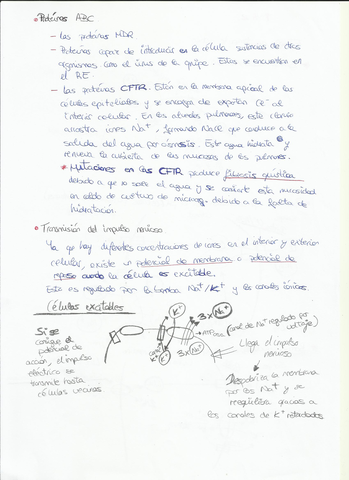 • Proteínas ABC
- Las proteínas MDR
- Proteínas capaz de introducir en la célula sustancias de otros
organismos como el virus de la gripe. Estas se encuentran en
el RE
- Las proteínas CFTR. Están en la membrana apical de las
células epiteliales y se encarga de expulsar Cl⁻ al
interior celular. En los alvéolos pulmonares, este cloruro
arrastra iones Na⁺, formando NaCl que conduce a la
salida del agua por ósmosis. Este agua hidrata
y renueva la cubierta de las mucosas de los pulmones.
* Mutaciones en las CFTR produce fibrosis quística
debido a que no sale el agua y se convierte esta mucosidad
en caldo de cultivo de microorg. debido a la falta de
hidratación.
• Transmisión del impulso nervioso
Ya que hay diferentes concentraciones de iones en el interior y exterior
celular, existe un potencial de membrana o potencial de
reposo cuando la célula es excitable.
Esto es regulado por la bomba Na⁺/K⁺ y los canales iónicos.
Células excitables
K⁺
3xNa⁺
ATPasa
(canal de Na⁺ regulado por
voltaje)
canal
K⁺
K⁺
3xNa⁺
Si se
consigue el
potencial de
acción, el impulso
eléctrico se
transmite hasta
células vecinas
Llega el impulso
nervioso
Despolariza la membrana
por los Na⁺ y se
reequilibra gracias a
los canales de K⁺ retardados